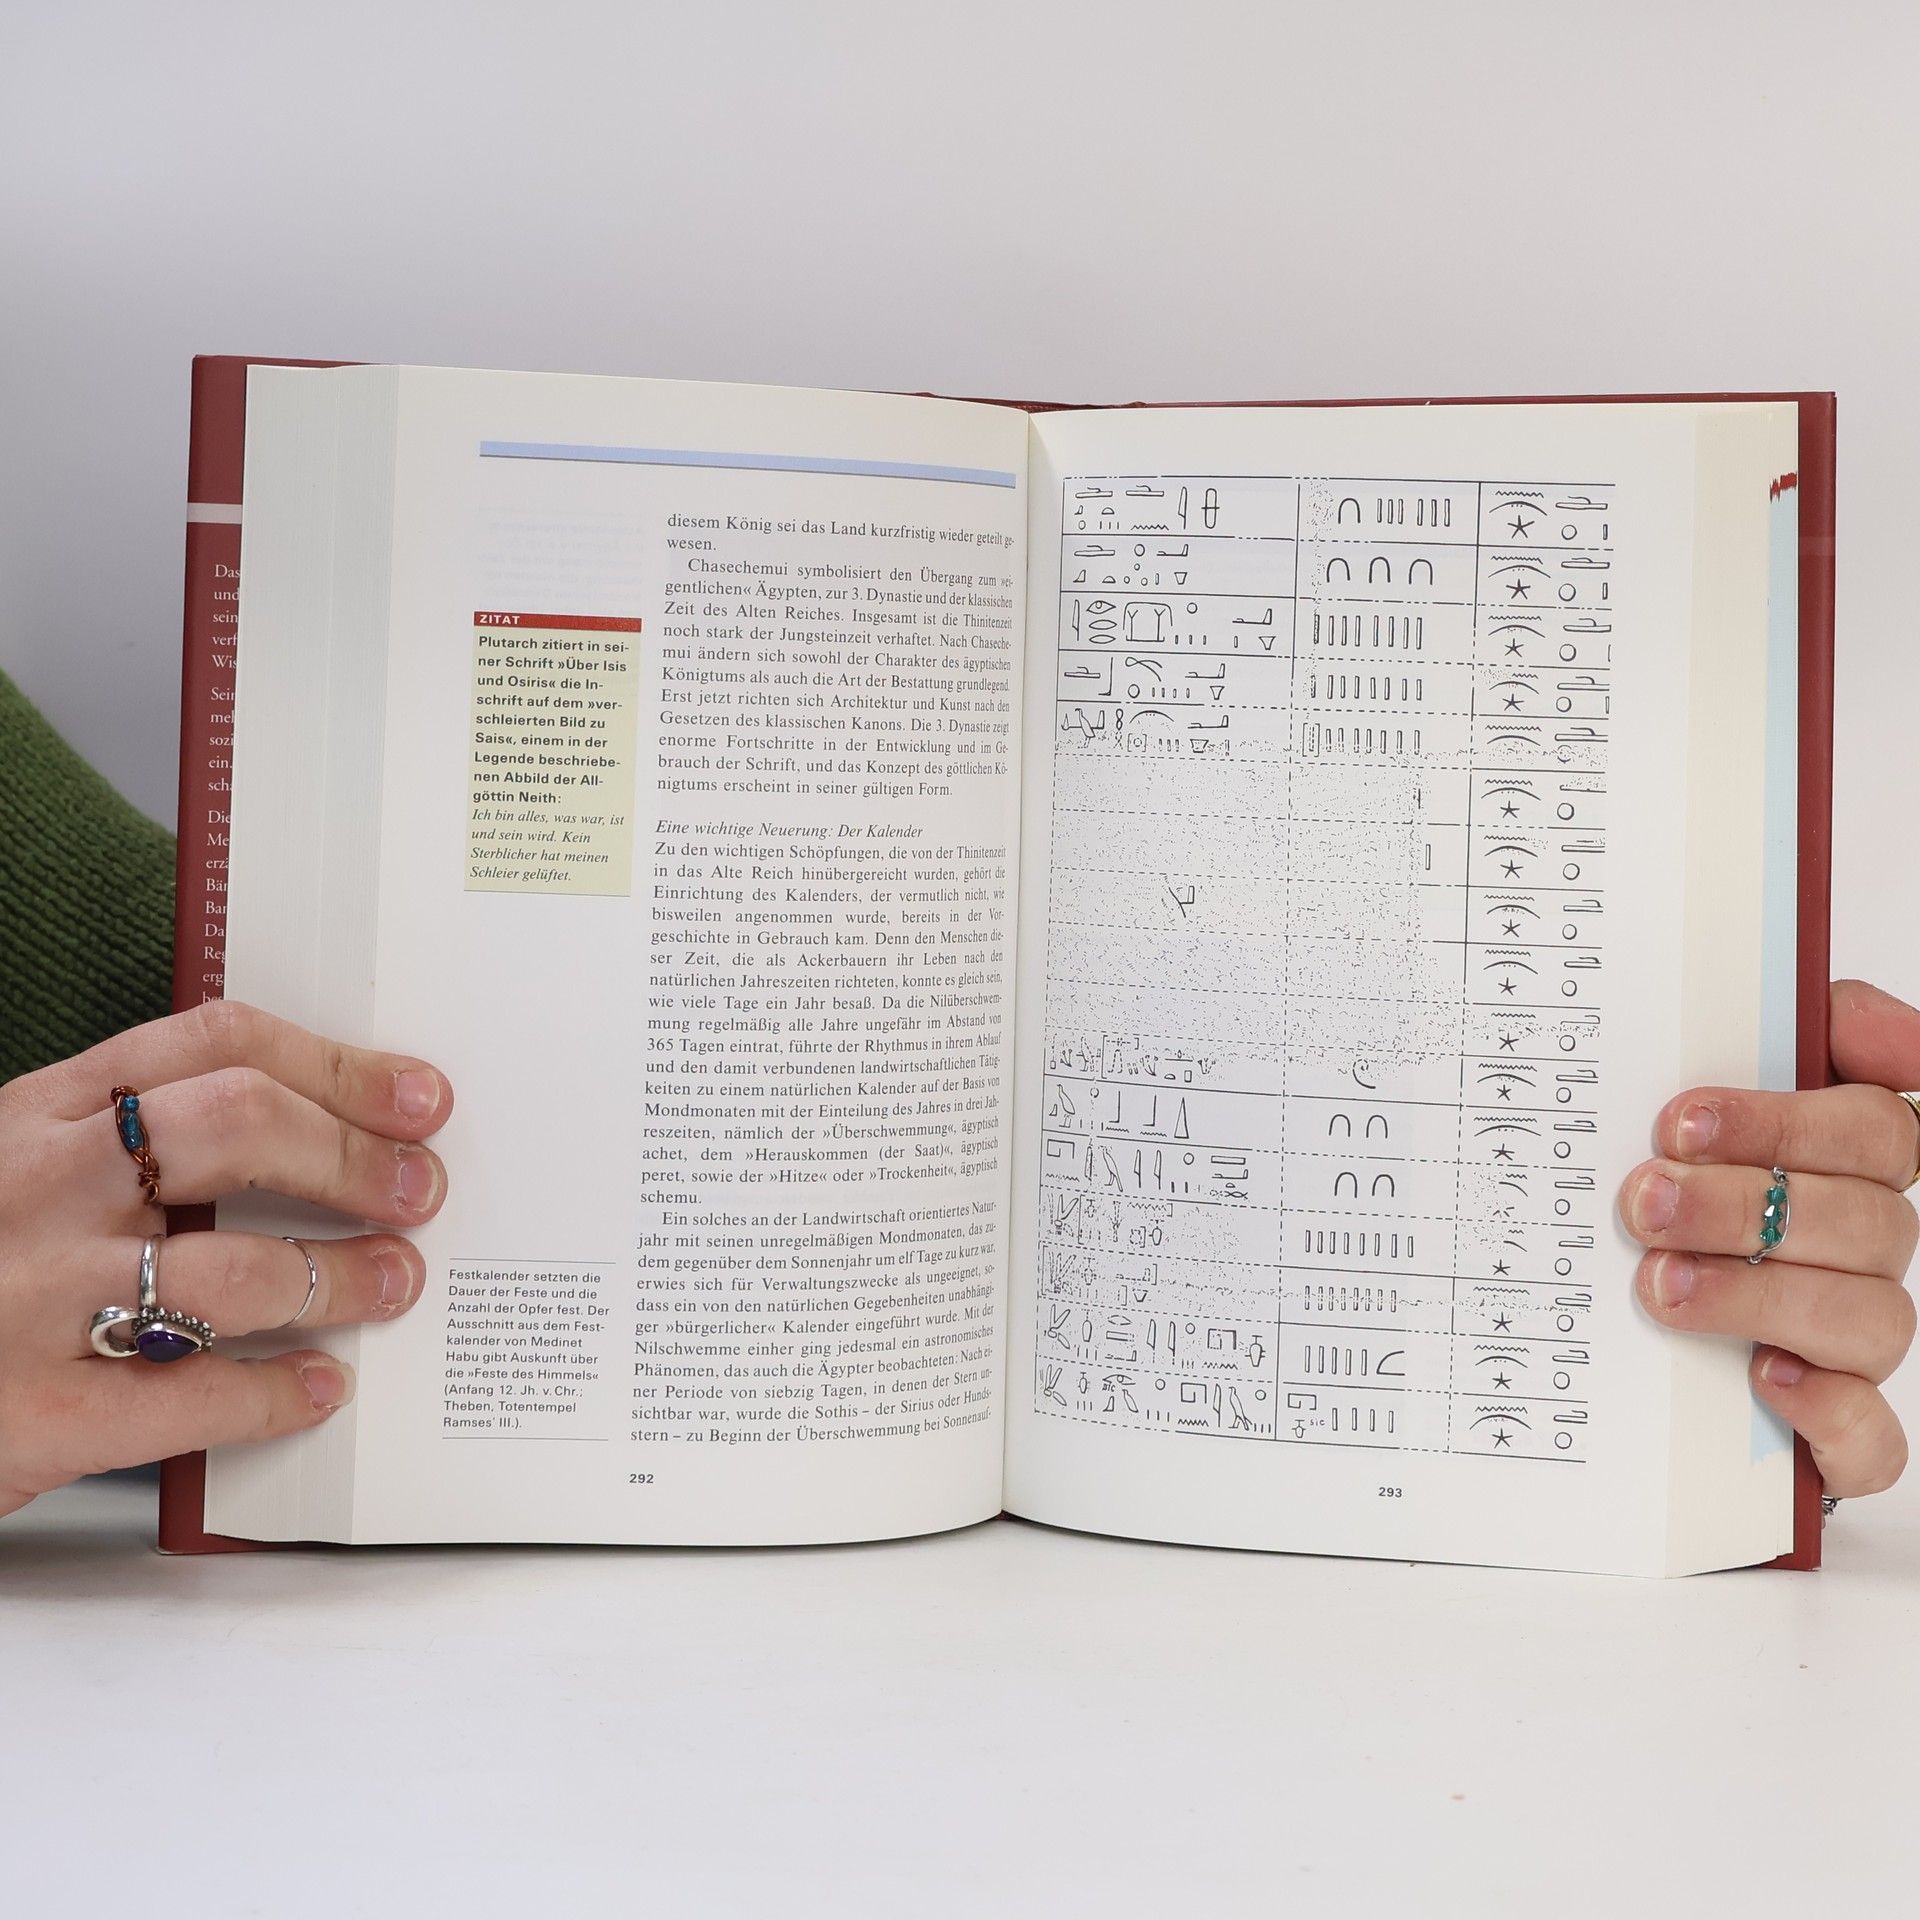 Das
und
sein
verf
Wis
Sein
meh
sozi
ein.
sch
Die
Me
erzä
Bän
Ban
Da
Reg
erg
bes
ZITAT
Plutarch zitiert in sei-
ner Schrift »Über Isis
und Osiris« die In-
schrift auf dem »ver-
schleierten Bild zu
Sais«, einem in der
Legende beschriebe-
nen Abbild der All-
göttin Neith:
Ich bin alles, was war, ist
und sein wird. Kein
Sterblicher hat meinen
Schleier gelüftet.
Festkalender setzten die
Dauer der Feste und die
Anzahl der Opfer fest. Der
Ausschnitt aus dem Fest-
kalender von Medinet
Habu gibt Auskunft über
die »Feste des Himmels«
(Anfang 12. Jh. v. Chr.;
Theben, Totentempel
Ramses' III.).
diesem König sei das Land kurzfristig wieder geteilt ge-
wesen.
Chasechemui symbolisiert den Übergang zum »ei-
gentlichen« Ägypten, zur 3. Dynastie und der klassischen
Zeit des Alten Reiches. Insgesamt ist die Thinitenzeit
noch stark der Jungsteinzeit verhaftet. Nach Chaseche-
mui ändern sich sowohl der Charakter des ägyptischen
Königtums als auch die Art der Bestattung grundlegend.
Erst jetzt richten sich Architektur und Kunst nach den
Gesetzen des klassischen Kanons. Die 3. Dynastie zeigt
enorme Fortschritte in der Entwicklung und im Ge-
brauch der Schrift, und das Konzept des göttlichen Kö-
nigtums erscheint in seiner gültigen Form.
Eine wichtige Neuerung: Der Kalender
Zu den wichtigen Schöpfungen, die von der Thinitenzeit
in das Alte Reich hinübergereicht wurden, gehört die
Einrichtung des Kalenders, der vermutlich nicht, wie
bisweilen angenommen wurde, bereits in der Vor-
geschichte in Gebrauch kam. Denn den Menschen die-
ser Zeit, die als Ackerbauern ihr Leben nach den
natürlichen Jahreszeiten richteten, konnte es gleich sein,
wie viele Tage ein Jahr besaß. Da die Nilüberschwem-
mung regelmäßig alle Jahre ungefähr im Abstand von
365 Tagen eintrat, führte der Rhythmus in ihrem Ablauf
und den damit verbundenen landwirtschaftlichen Tätig-
keiten zu einem natürlichen Kalender auf der Basis von
Mondmonaten mit der Einteilung des Jahres in drei Jah-
reszeiten, nämlich der »Überschwemmung«, ägyptisch
achet, dem »Herauskommen (der Saat)«, ägyptisch
peret, sowie der »Hitze« oder »Trockenheit«, ägyptisch
schemu.
Ein solches an der Landwirtschaft orientiertes Natur-
jahr mit seinen unregelmäßigen Mondmonaten, das zu-
dem gegenüber dem Sonnenjahr um elf Tage zu kurz war,
erwies sich für Verwaltungszwecke als ungeeignet, so-
dass ein von den natürlichen Gegebenheiten unabhängi-
ger »bürgerlicher« Kalender eingeführt wurde. Mit der
Nilschwemme einher ging jedesmal ein astronomisches
Phänomen, das auch die Ägypter beobachteten: Nach ei-
ner Periode von siebzig Tagen, in denen der Stern un-
sichtbar war, wurde die Sothis – der Sirius oder Hunds-
stern – zu Beginn der Überschwemmung bei Sonnenauf-
292
sic
sic
293